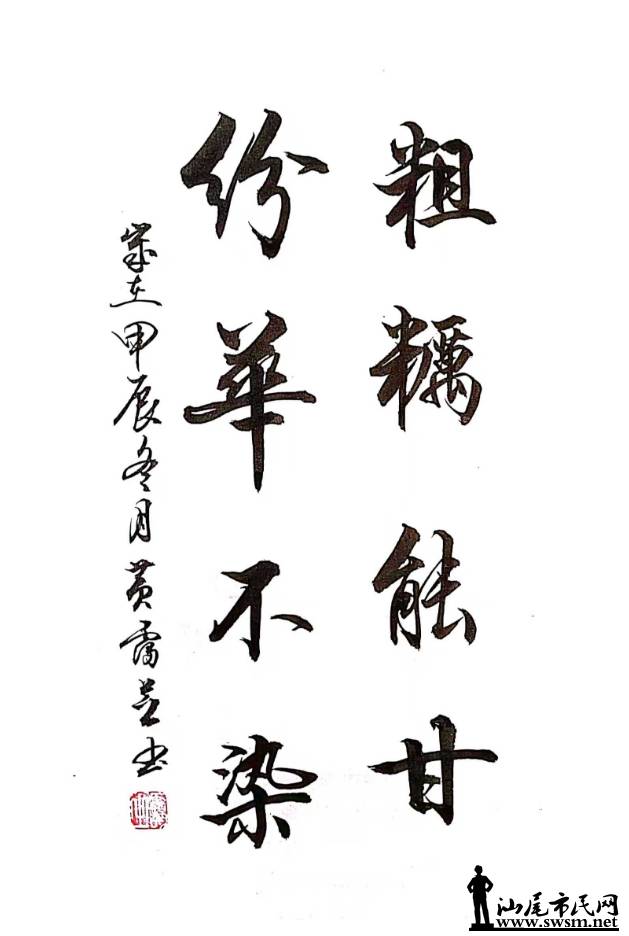 粗糲能甘
紛華不染
歲在甲辰冬月黃
書
汕尾市民网
www.swsm.net